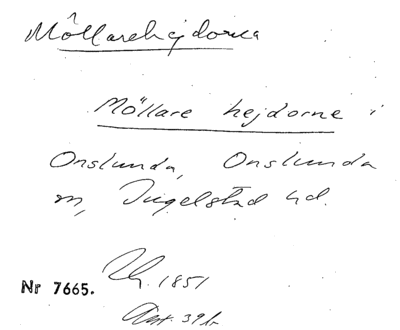 Möllarehejdorna
Möllare hejdorne i
Onslunda, Onslunda
sn, Ingelstad hd.
1851
Nr 7665.
Ant. 39